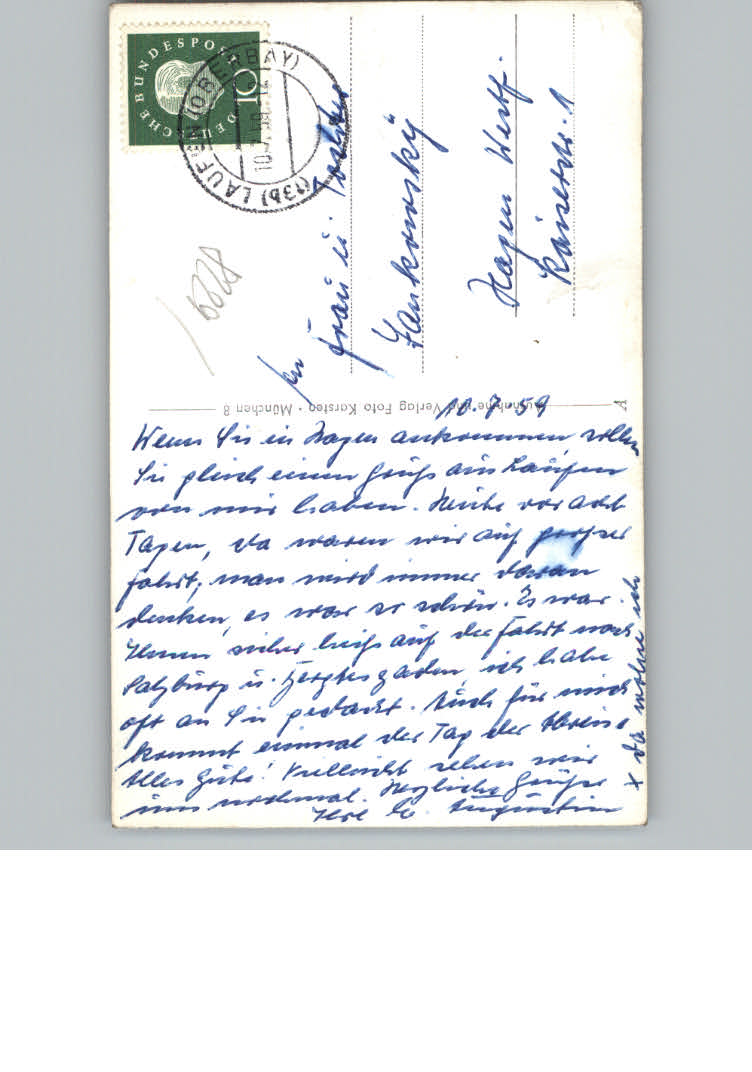 DEUTSCHE BUNDESPOST
10
(13b) LAUFEN (OBERBAY)
10.7.59.-12
An
Frau u. Tochter
Jankowsky
Hagen Westf.
Kaiserstr. 1
Aufnahme und Verlag Foto Karsten · München 8
A
10.7.59
Wenn Sie in Hagen ankommen, sollen
Sie gleich einen Gruß aus Laufen
von mir haben. Heute vor acht
Tagen, da waren wir auf großer
Fahrt, man wird immer daran
denken, es war so schön. Es war
Ihnen sicher heiß auf der Fahrt nach
Salzburg u. Berchtesgaden, ich habe
oft an Sie gedacht. Auch für mich
kommt einmal der Tag der Abreise
Alles Gute! Vielleicht sehen wir
uns nochmal. Herzliche Grüße
Ihre Augustin
x da wohne ich